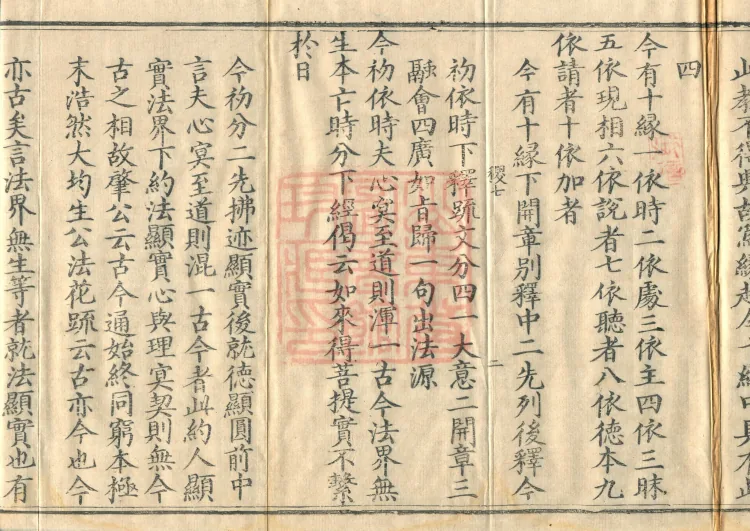 四
今有十緣一依時二依處三依主四依三昧
五依現相六依說者七依聽者八依德本九
依請者十依加者
今有十緣下開章別釋中二先列後釋今
初依時下釋疏文分四一大意二開章三
融會四廣如旨歸一句出法源
今初依時夫心冥至道則渾一古今法界無
生本亡時分下經偈云如來得菩提實不繫
於日
今初分二先拂迹顯實後就德顯圓前中
言夫心冥至道則混一古今者此約人顯
實法界下約法顯實心與理冥契則無今
古之相故肇公云古今通始終同窮本極
末浩然大均生公法花疏云古亦今也今
亦古矣言法界無生等者就法顯實也有